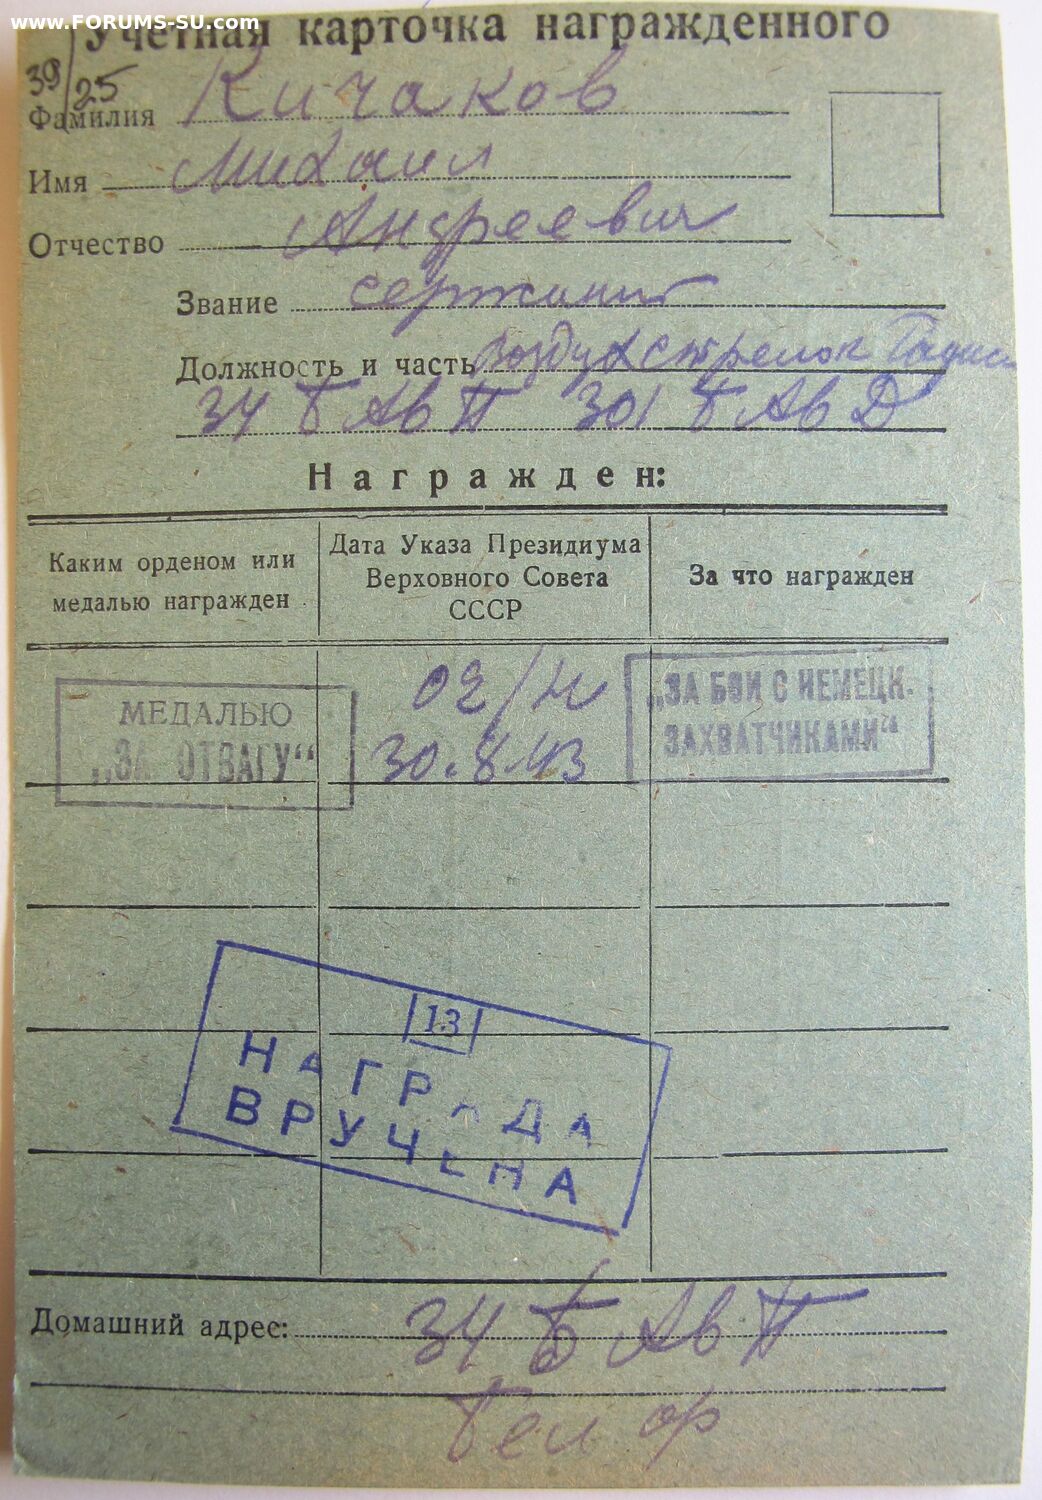 www.FORUMS-SU.com
Учетная карточка награжденного
39/25
Фамилия Кичаков
Имя Михаил
Отчество Андреевич
Звание сержант
Должность и часть воздух стрелок Радист
34 БАвП 301 БАвД
Награжден:
Каким орденом или медалью награжден
Дата Указа Президиума Верховного Совета СССР
За что награжден
МЕДАЛЬЮ
„ЗА ОТВАГУ“
02/н
30.8.43
„ЗА БОИ С НЕМЕЦК.
ЗАХВАТЧИКАМИ“
13
НАГРАДА
ВРУЧЕНА
Домашний адрес: 34 БАвП